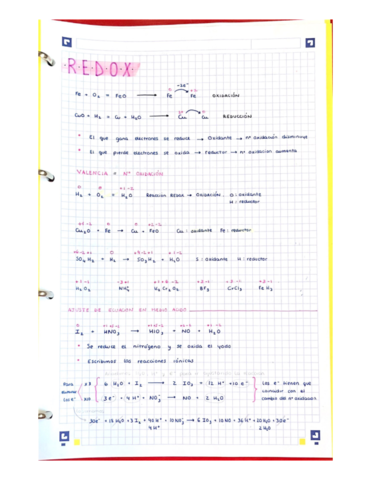 REDOX
-2e-
Fe + O₂ = FeO → Fe Fe OXIDACIÓN
CuO + H₂ = Cu + H₂O → Cu Cu REDUCCIÓN
* El que gana electrones se reduce → Oxidante → nº oxidación disminuye
* El que pierde electrones se oxida → reductor → nº oxidación aumenta
VALENCIA = Nº OXIDACIÓN
0 0 +1 -2
H₂ + O₂ = H₂O Reacción Redox → Oxidación O: oxidante
H: reductor
Cu₂O + Fe → Cu + FeO Cu: oxidante Fe: reductor
SO₄H₂ + H₂ → SO₃H₂ + H₂O S: oxidante H: reductor
H₂O₂ NH₄⁺ H₂Cr₂O₇ BF₃ CrCl₃ FeH₃
AJUSTE DE ECUACIÓN EN MEDIO ÁCIDO
I₂ + HNO₃ → HIO₃ + NO + H₂O
* Se reduce el nitrógeno y se oxida el yodo
* Escribimos las reacciones iónicas
Para
eliminar
los e⁻
x3 6 H₂O + I₂ → 2 IO₃ + 12 H⁺ + 10 e⁻
x10 3e⁻ + 4 H⁺ + NO₃⁻ → NO + 2 H₂O
Los e⁻ tienen que
coincidir con el
cambio del nº oxidación
30e⁻ + 18 H₂O + 3 I₂ + 40 H⁺ + 10 NO₃⁻ → 6 IO₃ + 10 NO + 36 H⁺ + 20 H₂O + 30e⁻
4 H⁺ 2 H₂O